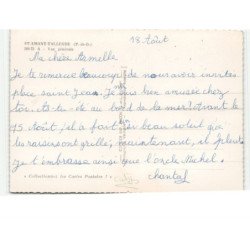 ST-AMANT-TALLENDE (P.-de-D.)
Vue générale
18 Août
Ma chère Armelle
Je te remercie beaucoup de nous avoir invités
place saint Jean. Je me suis bien amusée chez
toi. As-tu été au bord de la mer surtout le
15 Août, il a fait si beau soleil que
les raisins ont grillé, maintenant, il pleut
je t'embrasse ainsi que l'oncle Michel.
Chantal
« Collectionnez les Cartes Postales ! »